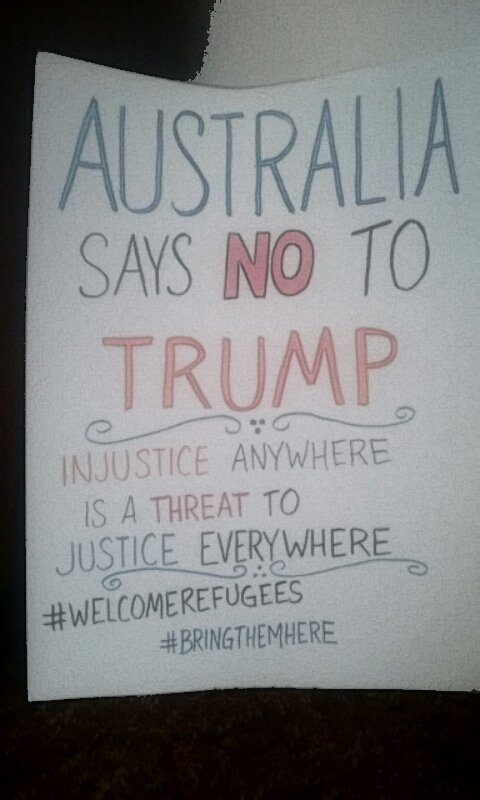 AUSTRALIA
SAYS NO TO
TRUMP
INJUSTICE ANYWHERE
IS A THREAT TO
JUSTICE EVERYWHERE
#WELCOMEREFUGEES
#BRINGTHEMHERE